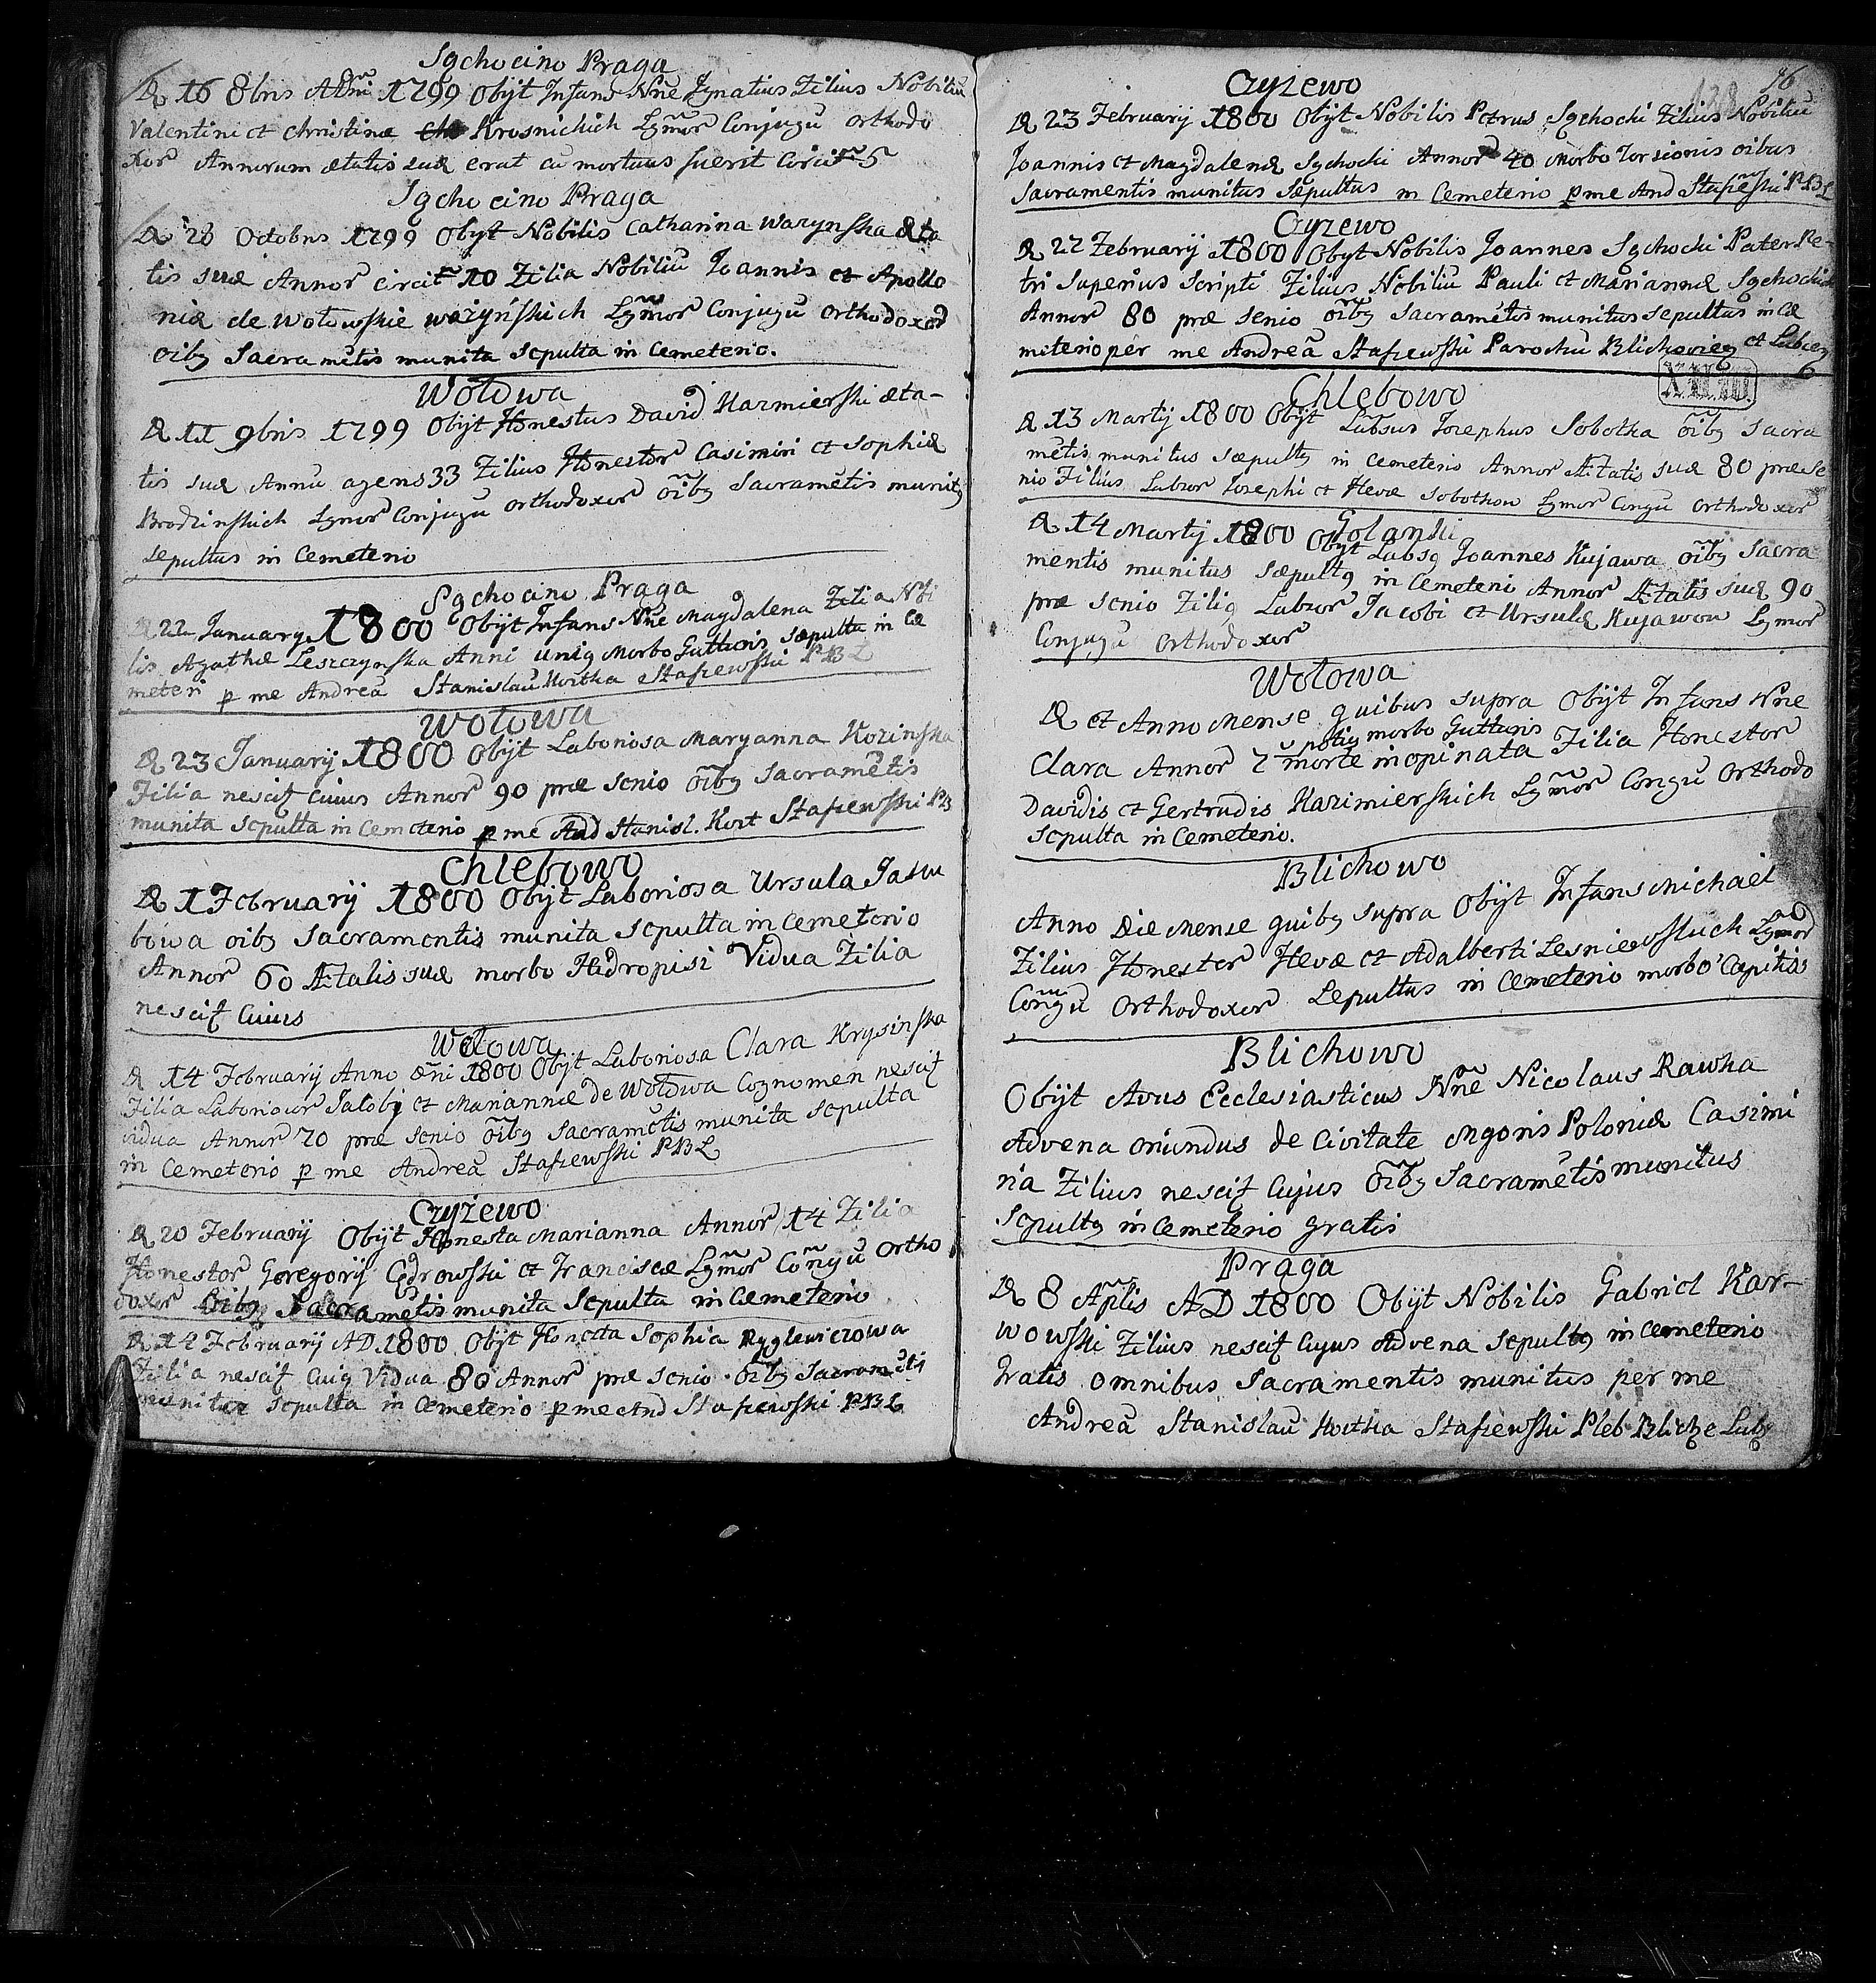 Sąchocino Praga
D 16 8bris ADni 1799 Obijt Infans Nne Ignatius Filius Nobiliū
Valentini et Christinæ Krosnickich Lgmor Conjugū Orthodo
xor Annorum ætatis suæ erat cū mortuus fuerit Circitr 5
Sąchocino Praga
D 28 Octobris 1799 Obijt Nobilis Catharina Warynska Æta
tis suæ Annor circitr 10 Filia Nobiliū Joannis et Apollo
niæ de Wołowskie Warÿnskich Lgmor Conjugū Orthodoxor
oibg Sacramētis munita Sepulta in Cemeterio.
Wołowa
D 11 9bris 1799 Obijt Honestus David Kazmierski æta-
tis suæ Annū agens 33 Filius Honestor Casimiri et Sophiæ
Brodzinskich Lgmor Conjugū Orthodoxor oibg Sacramētis munitg
sepultus in Cemeterio
Sąchocino Praga
D 22 January 1800 Obijt Infans Nne Magdalena Filia Nobi
lis Agathæ Leszczynska Anni unig Morbo Gutturis Sæpulta in Cæ
meteri p me Andreā Stanislaū Kostka Stasiewski PBL
Wołowa
D 23 Januarij 1800 Obijt Laboriosa Maryanna Kozinska
Filia nescit cuius Annor 90 præ senio oibg Sacramētis
munita Sepulta in Cemeterio p me And Stanisl. Kost Stasiewski PB
Chlebowo
D 1 Februarij 1800 Obijt Laboriosa Ursula Jaku
bowa oibg Sacramentis munita Sepulta in Cemeterio
Annor 60 Ætatis suæ morbo Hidropisi Vidua Filia
nescit Cuius
Wołowa
D 14 Februarij Anno Dni 1800 Obijt Laboriosa Clara Krysinska
Filia Laborioror Jacobi et Mariannæ de Wołowa Cognomen nescit
vidua Annor 70 præ Senio oibg Sacramētis munita Sepulta
in Cemeterio p me Andreā Stasiewski PBL
Czyżewo
D 20 Februarij Obijt Honesta Marianna Annor 14 Filia
Honestor Goregorij Cedrowski et Franciscæ Lgmor Congū Ortho
doxor Oibg Sacramētis munita Sepulta in Cemeterio
D 14 Februarij AD 1800 Obijt Honesta Sophia Ryglewiczowa
Filia nescit Cuig Vidua 80 Annor præ Senio oibg Sacramētis
munita Sepulta in Cemeterio p me And Stasiewski PBL
138 76
Czyzewo
D 23 Februarij 1800 Obijt Nobilis Petrus Sąchocki Filius Nobiliū
Joannis et Magdalenæ Sąchocki Annor 40 Morbo Torsionis oibus
Sacramentis munitus Sæpultus in Cemeterio p me And Stasiewski PBL
Czyzewo
D 22 Februarij 1800 Obijt Nobilis Joannes Sąchocki Pater Pe-
tri Superius Scripti Filius Nobiliū Pauli et Mariannæ Sąchockich
Annor 80 præ senio oibg Sacramētis munitus sepultus in Cæ
meterio per me Andreā Stasiewskū Parochū Blichovieg et Lubieg
6
Chlebowo
D 13 Martij 1800 Obijt Labsus Josephus Sobotka oibg Sacra
mētis munitus sæpultg in Cemeterio Annor Ætatis suæ 80 præ Se
nio Filius Labror Josephi et Hevæ Sobotkow Lgmor Congū Orthodoxor
Golanki
D 14 Martij 1800 Obijt Labsg Joannes Kujawa oibg Sacra
mentis munitus sæpultg in Cemeterio Annor Ætatis suæ 90
præ senio Filig Labror Jacobi et Ursulæ Kujawow Lgmor
Conjugū Orthodoxor
Wołowa
D et Anno Mense quibus supra Obijt Infans Nne
potig morbo Gutturis
Clara Annor 2 morte inopinata Filia Honestor
Davidis et Gertrudis Kazimierskich Lgmor Congū Orthodo
Sepulta in Cemeterio.
Blichowo
Anno Die Mense quibg supra Obijt Infans Michael
Filius Honestor Hevæ et Adalberti Lesniewskich Lgmor
Congū Orthodoxor Sepultus in Cemeterio morbo Capitis
Blichowo
Obijt Avus Ecclesiasticus Nne Nicolaus Rawka
Advena oriundus de Civitate Mgoris Poloniæ Casimi
ria Filius nescit Cujus oibg Sacramētis munitus
Sepultg in Cemeterio gratis
Praga
D 8 Aplis AD 1800 Obijt Nobilis Gabriel Kar-
wowski Filius nescit Cujus Advena Sepultg in Cemeterio
Gratis omnibus Sacramentis munitus per me
Andreā Stanislaū Kostka Stasiewski Pleb Blich e Lub